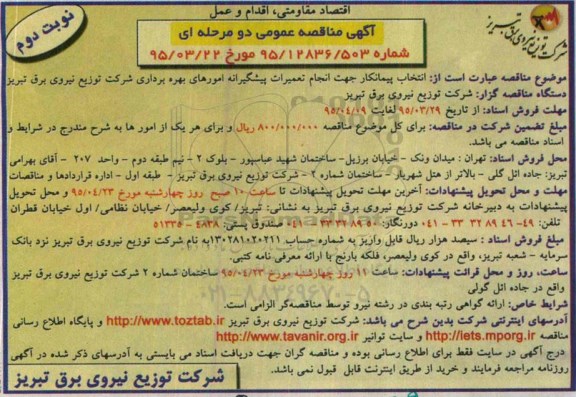 اقتصاد مقاومتی، اقدام و عمل
نوبت دوم
آگهی مناقصه عمومی دو مرحله ای
شماره ۹۵/۱۲۸۳۶/۵۰۳ مورخ ۹۵/۰۳/۲۲
شرکت توزیع نیروی برق تبریز
موضوع مناقصه عبارت است از: انتخاب پیمانکار جهت انجام تعمیرات پیشگیرانه امورهای بهره برداری شرکت توزیع نیروی برق تبریز
دستگاه مناقصه گزار: شرکت توزیع نیروی برق تبریز
مهلت فروش اسناد: از تاریخ ۹۵/۰۳/۲۹ لغایت ۹۵/۰۴/۰۹
مبلغ تضمین شرکت در مناقصه: برای کل موضوع مناقصه ۸۰۰/۰۰۰/۰۰۰ ریال و برای هر یک از امور ها به شرح مندرج در شرایط و
اسناد مناقصه می باشد.
محل فروش اسناد: تهران : میدان ونک - خیابان برزیل- ساختمان شهید عباسپور - بلوک ۲ - نیم طبقه دوم - واحد ۲۰۷ - آقای بهرامی
تبریز: جاده ائل گلی - بالاتر از هتل شهریار - ساختمان شماره ۲ - شرکت توزیع نیروی برق تبریز - طبقه اول - اداره قراردادها و مناقصات
مهلت و محل تحویل پیشنهادات: آخرین مهلت تحویل پیشنهادات تا ساعت ۱۰ صبح روز چهارشنبه مورخ ۹۵/۰۴/۲۳ و محل تحویل
پیشنهادات به دبیرخانه شرکت توزیع نیروی برق تبریز به نشانی: تبریز/ کوی ولیعصر/ خیابان نظامی/ اول خیابان قطران
تلفن: ۴۹-۴۶ ۸۹ ۳۲ ۳۳ - ۰۴۱ دورنگار: ۵۰ ۸۹ ۳۲ ۳۳ - ۰۴۱ صندوق پستی: ۴۸۳۸ - ۵۱۳۳۵
مبلغ فروش اسناد : سیصد هزار ریال قابل واریز به شماره حساب ۱۳۰۲۸۱۰۲۰۲۱۱ به نام شرکت توزیع نیروی برق تبریز نزد بانک
سرمایه - شعبه تبریز، واقع در کوی ولیعصر، فلکه بارنج با ارائه معرفی نامه کتبی.
ساعت، روز و محل قرائت پیشنهادات: ساعت ۱۱ روز چهارشنبه مورخ ۹۵/۰۴/۲۳ ساختمان شماره ۲ شرکت توزیع نیروی برق تبریز
واقع در جاده ائل گولی
شرایط خاص: ارائه گواهی رتبه بندی در رشته نیرو توسط مناقصه‌گر الزامی است.
آدرسهای اینترنتی شرکت بدین شرح می باشد: شرکت توزیع نیروی برق تبریز http://www.toztab.ir و پایگاه اطلاع رسانی
مناقصه http://iets.mporg.ir و سایت توانیر http://www.tavanir.org.ir
درج آگهی در سایت فقط برای اطلاع رسانی بوده و مناقصه گران جهت دریافت اسناد می بایستی به آدرسهای ذکر شده در آگهی
روزنامه مراجعه فرمایند و خرید از طریق اینترنت قابل قبول نمی باشد.
شرکت توزیع نیروی برق تبریز